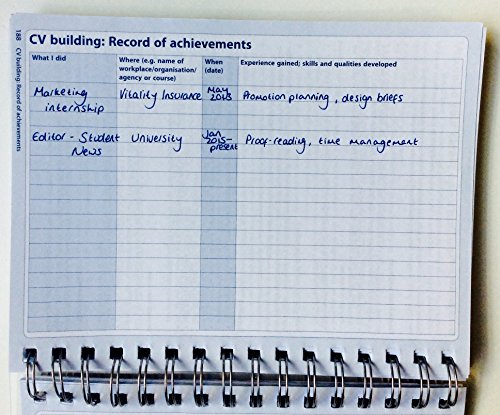 188 CV building: Record of achievements
CV building: Record of achievements
What I did
Where (e.g. name of
workplace/organisation/
agency or course)
When
(date)
Experience gained; skills and qualities developed
Marketing
internship
Vitality Insurance
May
2013
Promotion planning, design briefs
Editor - Student
News
University
Jan
2015-
present
Proof-reading, time management